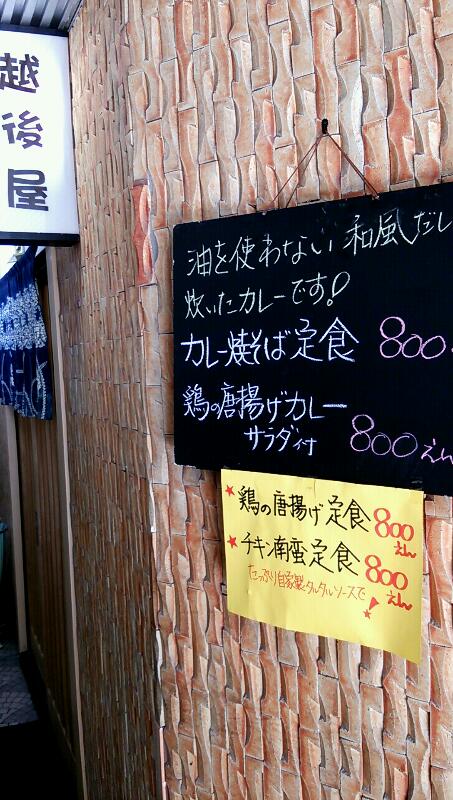 越後屋
油を使わない和風だし
炊いたカレーです!
カレー焼そば定食 800
鶏の唐揚げカレー
サラダ付 800えん
鶏の唐揚げ定食 800えん
チキン南蛮定食 800えん
たっぷり自家製タルタルソースで!